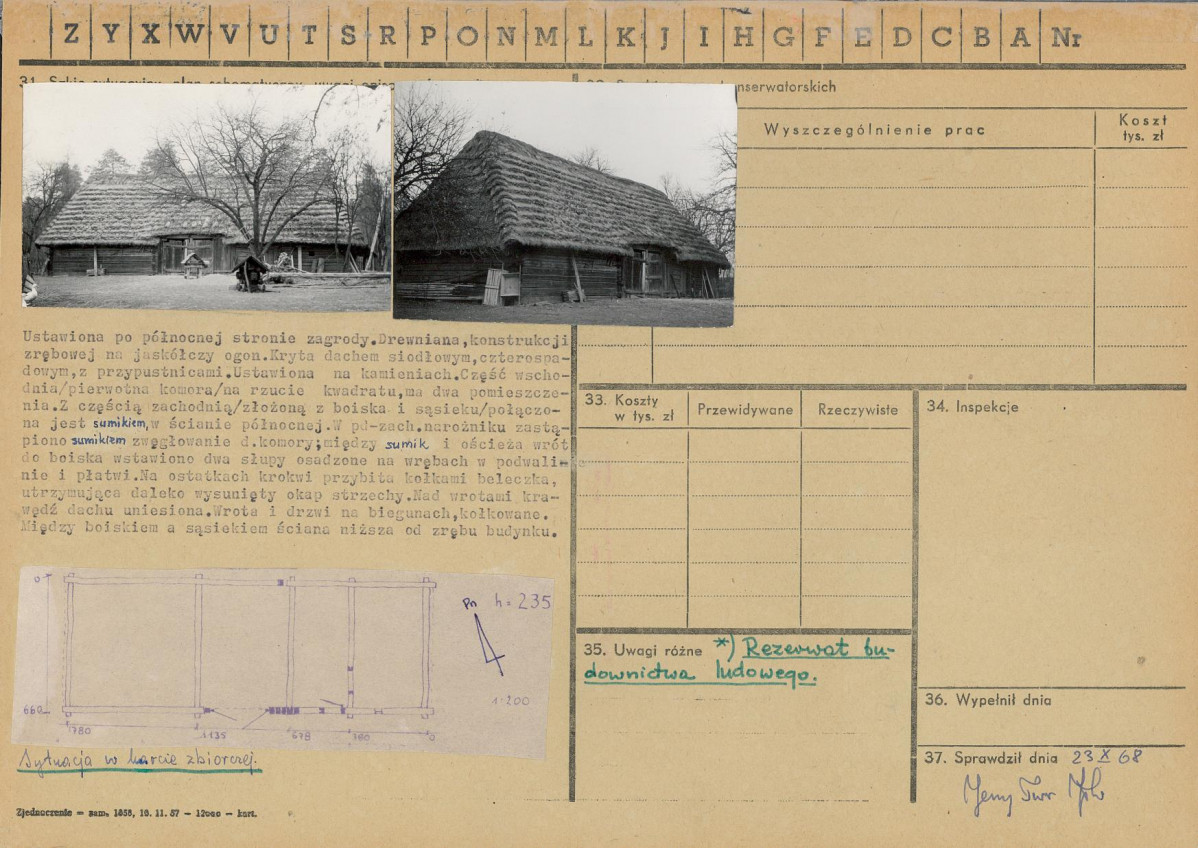 Z Y X W V U T S R P O N M L K J I H G F E D C B A Nr
31.
nserwatorskich
Wyszczególnienie prac
Koszt
tys. zł
Ustawiona po północnej stronie zagrody.Drewniana,konstrukcji
zrębowej na jaskółczy ogon.Kryta dachem siodłowym,czterospa-
dowym,z przypustnicami.Ustawiona na kamieniach.Część wscho-
dnia/pierwotna komora/na rzucie kwadratu,ma dwa pomieszcze-
nia.Z częścią zachodnią/złożoną z boiska i sąsieku/połączo-
na jest sumikiem,w ścianie północnej.W pd-zach.narożniku zastą-
piono sumikiem zwęgłowanie d.komory;między sumik i ościeża wrót
do boiska wstawiono dwa słupy osadzone na wrębach w podwali-
nie i płatwi.Na ostatkach krokwi przybita kołkami beleczka,
utrzymująca daleko wysunięty okap strzechy.Nad wrotami kra-
wędź dachu uniesiona.Wrota i drzwi na biegunach,kołkowane.
Między boiskiem a sąsiekiem ściana niższa od zrębu budynku.
33. Koszty
w tys. zł
Przewidywane
Rzeczywiste
34. Inspekcje
0
Pn h=235
1:200
660
1780 1135 678 380 0
Sytuacja w karcie zbiorczej.
35. Uwagi różne *) Rezerwat bu-
downictwa ludowego.
36. Wypełnił dnia
37. Sprawdził dnia 23 X 68
Zjednoczenie = zam. 1055, 10. 11. 57 — 12000 — kart.